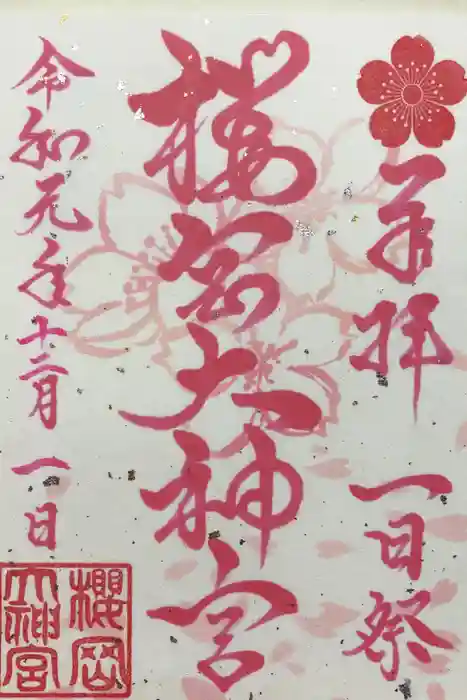 奉拝 一日祭
櫻岡大神宮
令和元年十二月一日
櫻岡
大神宮